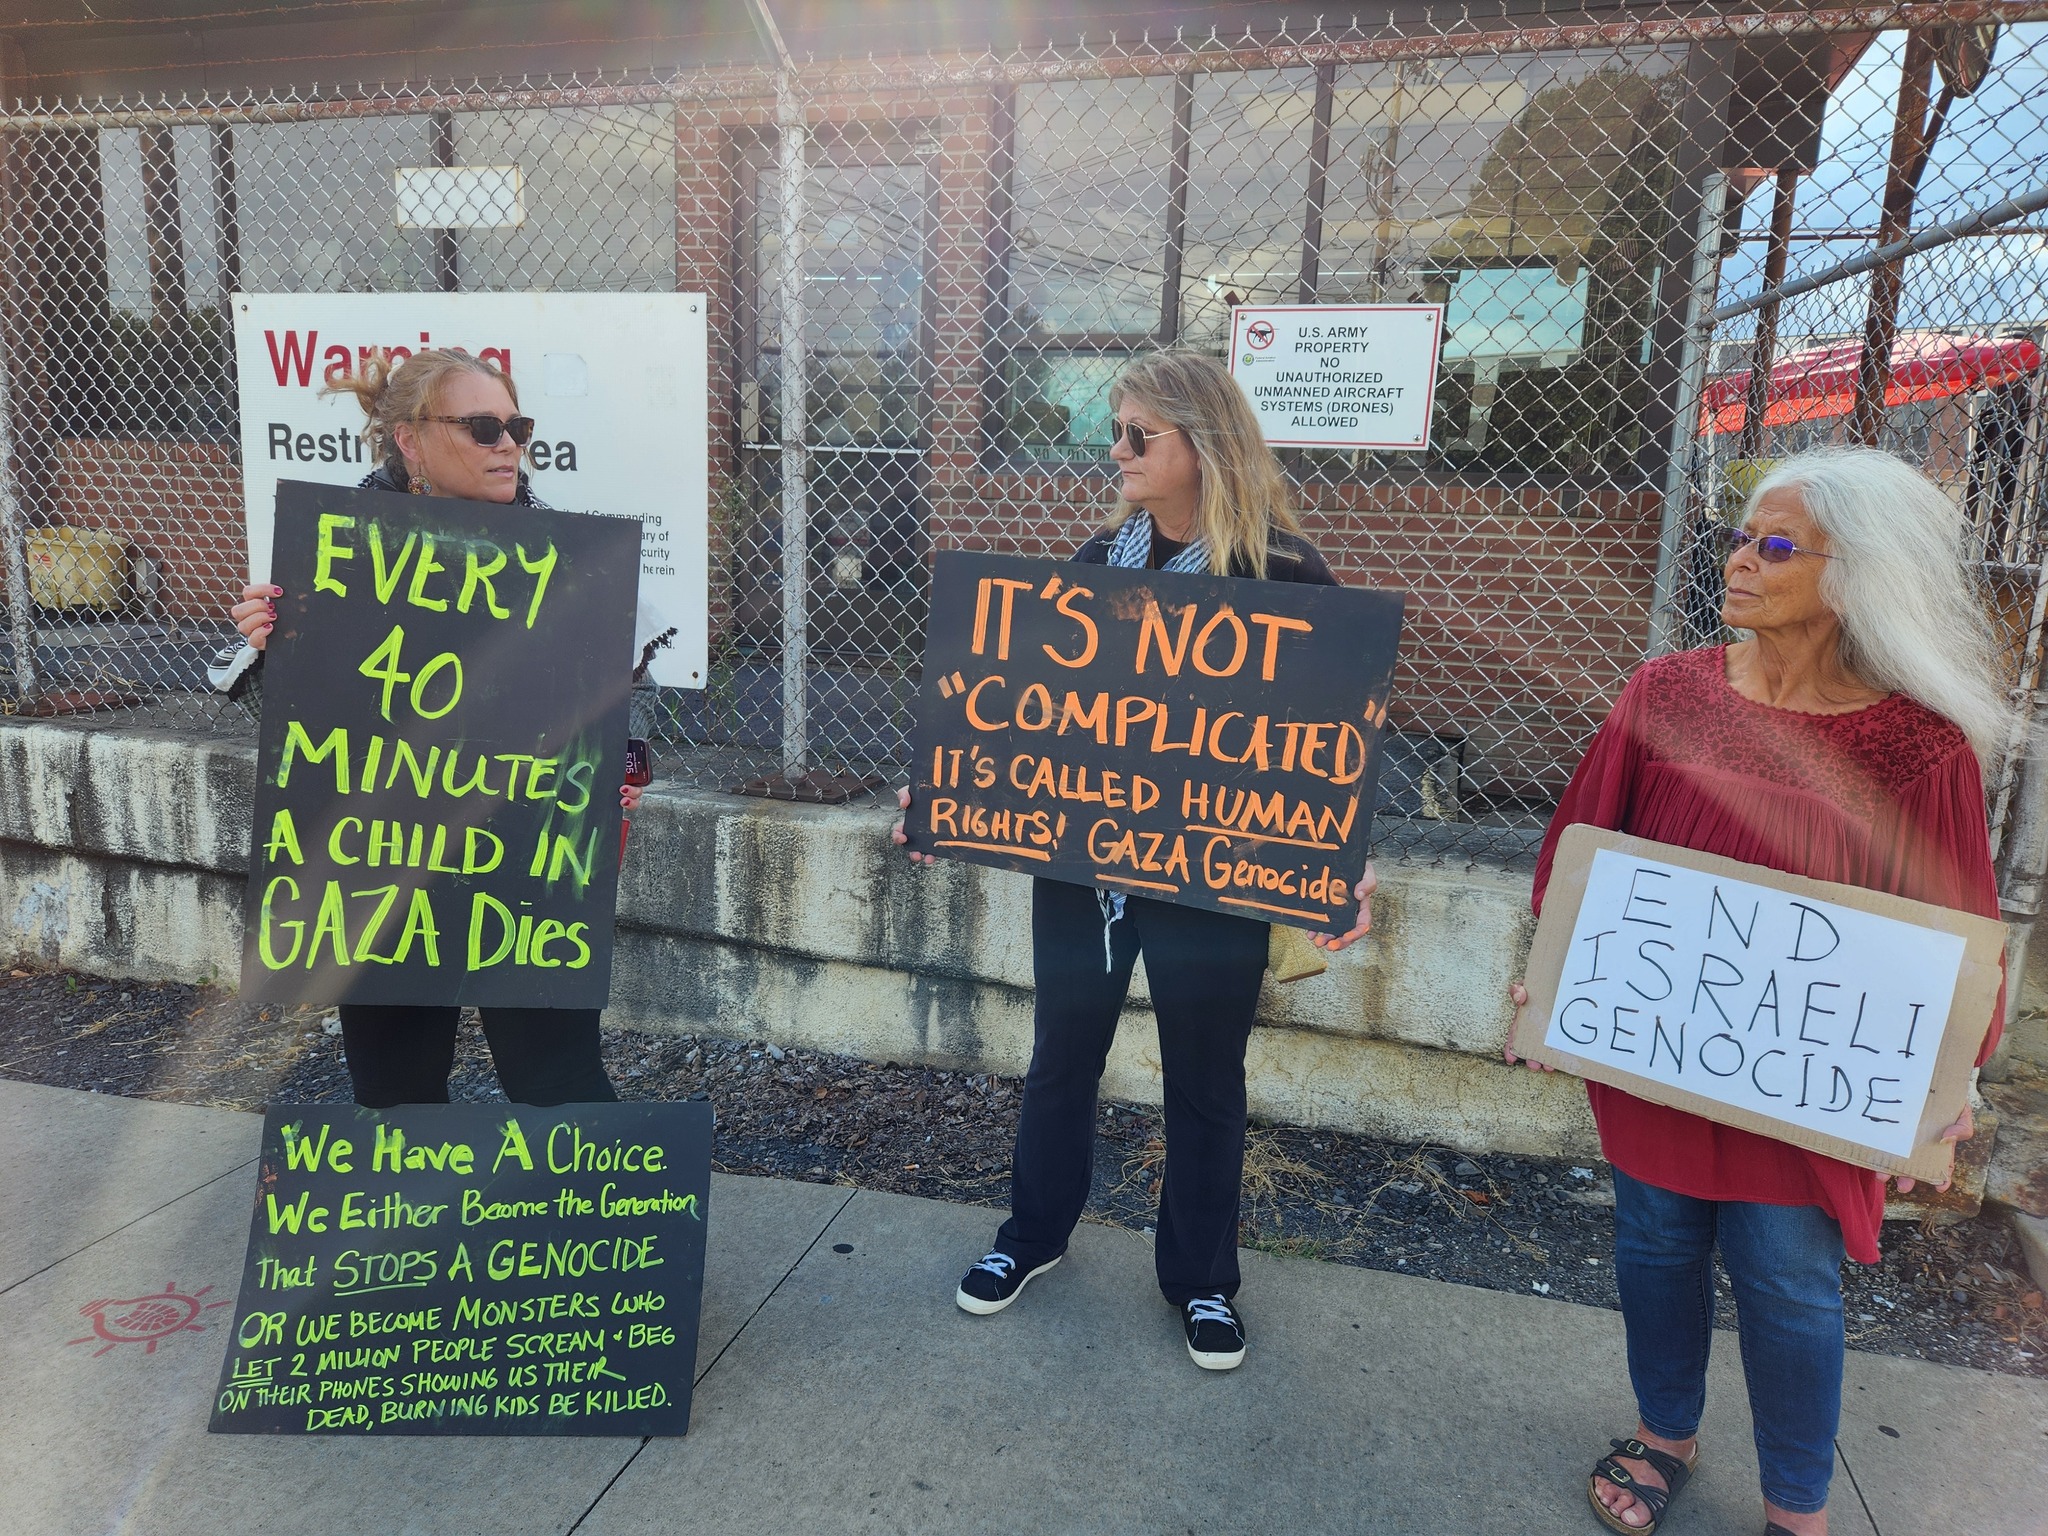 Warning
U.S. ARMY
PROPERTY
NO
UNAUTHORIZED
UNMANNED AIRCRAFT
SYSTEMS (DRONES)
ALLOWED
of Commanding
herein
EVERY
40
MINUTES
A CHILD IN
GAZA Dies
IT'S NOT
"COMPLICATED"
IT'S CALLED HUMAN
RIGHTS! GAZA Genocide
END
ISRAELI
GENOCIDE
We Have A Choice.
We Either Become the Generation
That STOPS A GENOCIDE
OR WE BECOME MONSTERS WHO
LET 2 MILLION PEOPLE SCREAM + BEG
ON THEIR PHONES SHOWING US THEIR
DEAD, BURNING KIDS BE KILLED.